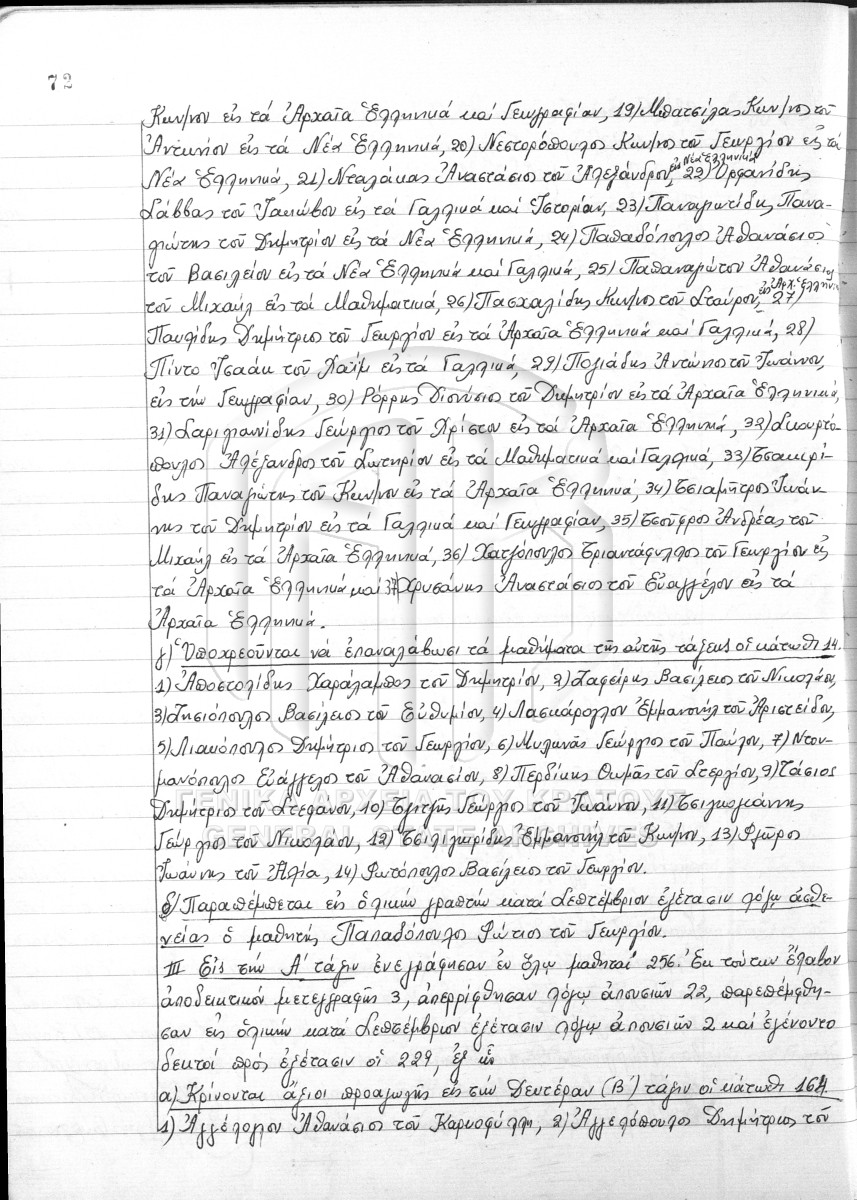 72
Κων/νου εἰς τά Ἀρχαῖα Ἑλληνικά καί Γεωγραφίαν, 19) Μπατσίλας Κων/νος τοῦ
Ἀντωνίου εἰς τά Νέα Ἑλληνικά, 20) Νεστορόπουλος Κων/νος τοῦ Γεωργίου εἰς τά
Νέα Ἑλληνικά, 21) Νταλάκας Ἀναστάσιος τοῦ Ἀλεξάνδρου εἰς Νέα Ἑλληνικά, 22) Ὀρφανίδης
Σάββας τοῦ Ἰακώβου εἰς τά Γαλλικά καί Ἱστορίαν, 23) Παναγιωτίδης Πανα-
γιώτης τοῦ Δημητρίου εἰς τά Νέα Ἑλληνικά, 24) Παπαδόπουλος Ἀθανάσιος
τοῦ Βασιλείου εἰς τά Νέα Ἑλληνικά καί Γαλλικά, 25) Παπαναγιώτου Ἀθανάσιος
τοῦ Μιχαήλ εἰς τά Μαθηματικά, 26) Πασχαλίδης Κων/νος τοῦ Σταύρου, εἰς Ἀρχ. Ἑλληνικά 27)
Παυλίδης Δημήτριος τοῦ Γεωργίου εἰς τά Ἀρχαῖα Ἑλληνικά καί Γαλλικά, 28)
Πίντο Ἰσαάκ τοῦ Χαΐμ εἰς τά Γαλλικά, 29) Πολιάδης Ἀντώνιος τοῦ Ἰωάννου,
εἰς τήν Γεωγραφίαν, 30) Ρόρρης Διονύσιος τοῦ Δημητρίου εἰς τά Ἀρχαῖα Ἑλληνικά,
31) Σαριγιαννίδης Γεώργιος τοῦ Χρίστου εἰς τά Ἀρχαῖα Ἑλληνικά, 32) Σκουρτό-
πουλος Ἀλέξανδρος τοῦ Σωτηρίου εἰς τά Μαθηματικά καί Γαλλικά, 33) Τσακιρί-
δης Παναγιώτης τοῦ Κων/νου εἰς τά Ἀρχαῖα Ἑλληνικά, 34) Τσιαμῆτρος Ἰωάν-
νης τοῦ Δημητρίου εἰς τά Γαλλικά καί Γεωγραφίαν, 35) Τσοῦφρος Ἀνδρέας τοῦ
Μιχαήλ εἰς τά Ἀρχαῖα Ἑλληνικά, 36) Χατζόπουλος Τριαντάφυλλος τοῦ Γεωργίου εἰς
τά Ἀρχαῖα Ἑλληνικά καί 37) Χρυσάνης Ἀναστάσιος τοῦ Εὐαγγέλου εἰς τά
Ἀρχαῖα Ἑλληνικά.
γ) Ὑποχρεοῦνται νά ἐπαναλάβωσι τά μαθήματα τῆς αὐτῆς τάξεως οἱ κάτωθι 14.
1) Ἀποστολίδης Χαράλαμπος τοῦ Δημητρίου, 2) Ζαφείρης Βασίλειος τοῦ Νικολάου,
3) Ζησιόπουλος Βασίλειος τοῦ Εὐθυμίου, 4) Λασκάρογλου Ἐμμανουήλ τοῦ Ἀριστείδου,
5) Λιακόπουλος Δημήτριος τοῦ Γεωργίου, 6) Μυλωνᾶς Γεώργιος τοῦ Παύλου, 7) Ντου-
μανόπουλος Εὐάγγελος τοῦ Ἀθανασίου, 8) Περδίκης Θωμᾶς τοῦ Στεργίου, 9) Τάσιος
Δημήτριος τοῦ Στεφάνου, 10) Τζιτζῆς Γεώργιος τοῦ Ἰωάννου, 11) Τσιγκογιάννης
Γεώργιος τοῦ Νικολάου, 12) Τσιλιγκιρίδης Ἐμμανουήλ τοῦ Κων/νου, 13) Φλῶρος
Ἰωάννης τοῦ Ἀχιλλέα, 14) Φωτόπουλος Βασίλειος τοῦ Γεωργίου.
δ) Παραπέμπεται εἰς ὁλικήν γραπτήν κατά Σεπτέμβριον ἐξέτασιν λόγῳ ἀσθε-
νείας ὁ μαθητής Παπαδόπουλος Φώτιος τοῦ Γεωργίου.
ΙΙΙ Εἰς τήν Α' τάξιν ἐνεγράφησαν ἐν ὅλῳ μαθηταί 256. Ἐκ τούτων ἔλαβον
ἀποδεικτικόν μετεγγραφῆς 3, ἀπερρίφθησαν λόγῳ ἀπουσιῶν 22, παρεπέμφθη-
σαν εἰς ὁλικήν κατά Σεπτέμβριον ἐξέτασιν λόγῳ ἀπουσιῶν 2 καί ἐγένοντο
δεκτοί πρός ἐξέτασιν οἱ 229, ἐξ ὧν
α) Κρίνονται ἄξιοι προαγωγῆς εἰς τήν Δευτέραν (Β') τάξιν οἱ κάτωθι 164.
1) Ἀγγέλογλου Ἀθανάσιος τοῦ Καρυοφύλλη, 2) Ἀγγελόπουλος Δημήτριος τοῦ
ΓΕΝΙΚΑ ΑΡΧΕΙΑ ΤΟΥ ΚΡΑΤΟΥΣ
GENERAL STATE ARCHIVES